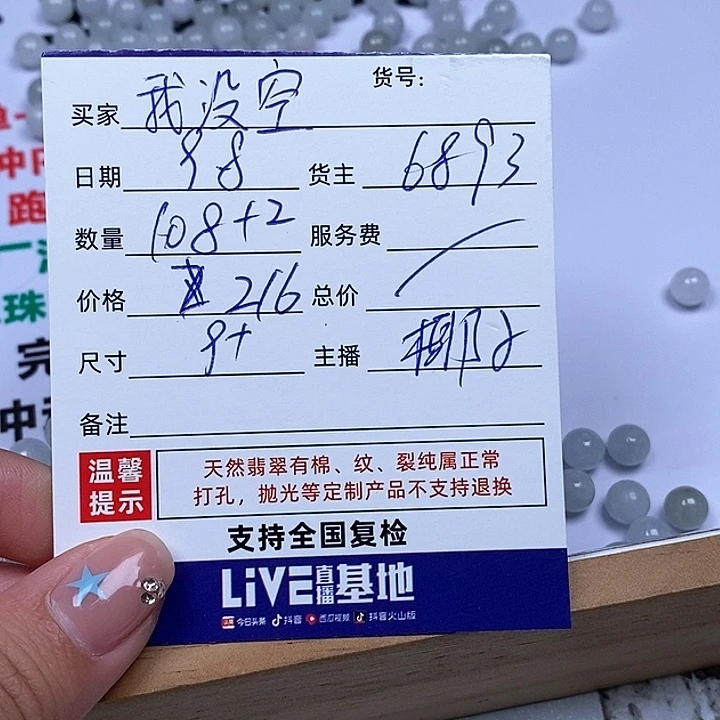 货号:
买家 我没空
日期 98 货主 6893
数量 108+2 服务费 /
价格 216 总价
尺寸 9+ 主播 椰子
备注
温馨提示
天然翡翠有棉、纹、裂纯属正常
打孔，抛光等定制产品不支持退换
支持全国复检
LiVE直播基地
今日头条 抖音 西瓜视频 抖音火山版
中
跑
珠
完
中